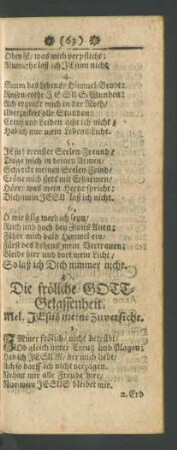 (63)
Oben ist, was mich verpflicht:
Nunmehr laß ich JEsum nicht.
4.
Baum des Lebens, Himmel-Brodt:
Rosen-rothe JESUS-Wunden:
Ach erquickt mich in der Noth,
Creutz und Leiden acht ich nicht,
Hab ich nur mein Lebens-Licht.
5.
JEsu! treuster Seelen-Freund,
Trage mich in deinen Armen,
Schrecke meinen Seelen-Feind,
Höre, was mein Hertze spricht:
Dich mein JESU laß ich nicht.
6.
O wie selig werd ich seyn,
Führ mich bald gen Himmel ein,
Fürst des Lebens mein Vertrauen:
Bleibe hier und dort mein Licht,
So laß ich Dich nimmer nicht.
Die fröliche GOTT-
Gelassenheit.
Mel. JEsus meine Zuversicht.
IMmer frölich, nicht betrübt,
Ob gleich unter Creutz und Plagen;
Hab ich JESUM, der mich liebt,
Ach so darff ich nicht verzagen.
Nehmt mir alle Freude hier,
Nur mein JESUS bleibet mir.
2. Erd